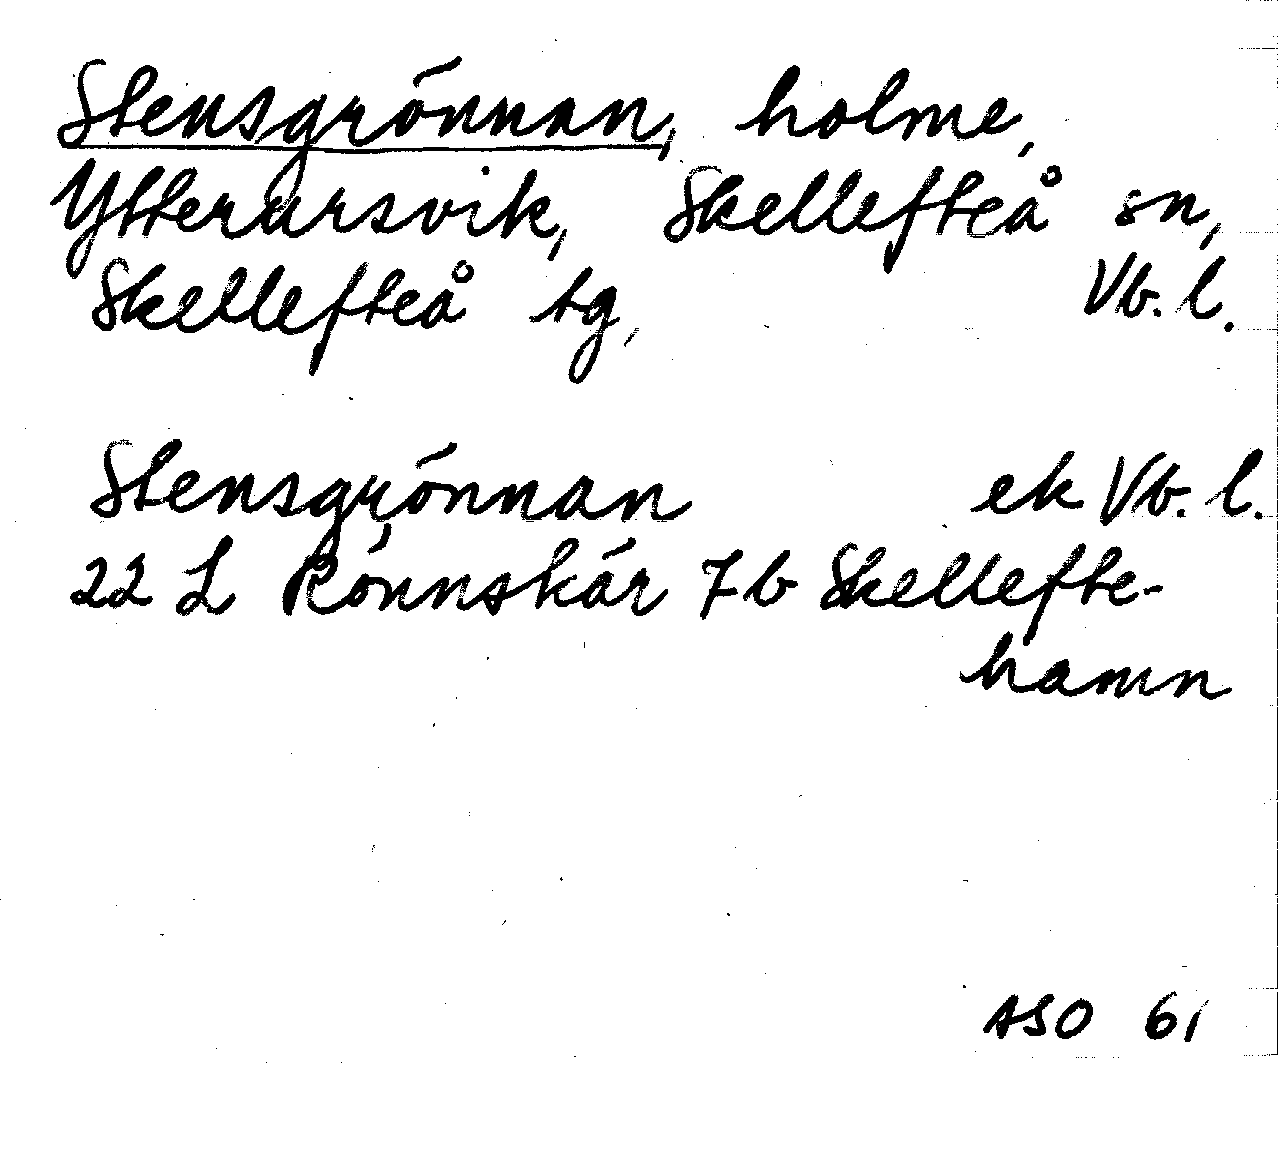 Stensgrönnan, holme,
Ytterursvik, Skellefteå sn,
Skellefteå tg, Vb. l.
Stensgrönnan ek Vb. l.
22 L Rönnskär 7b Skellefte-
hamn
ASO 61